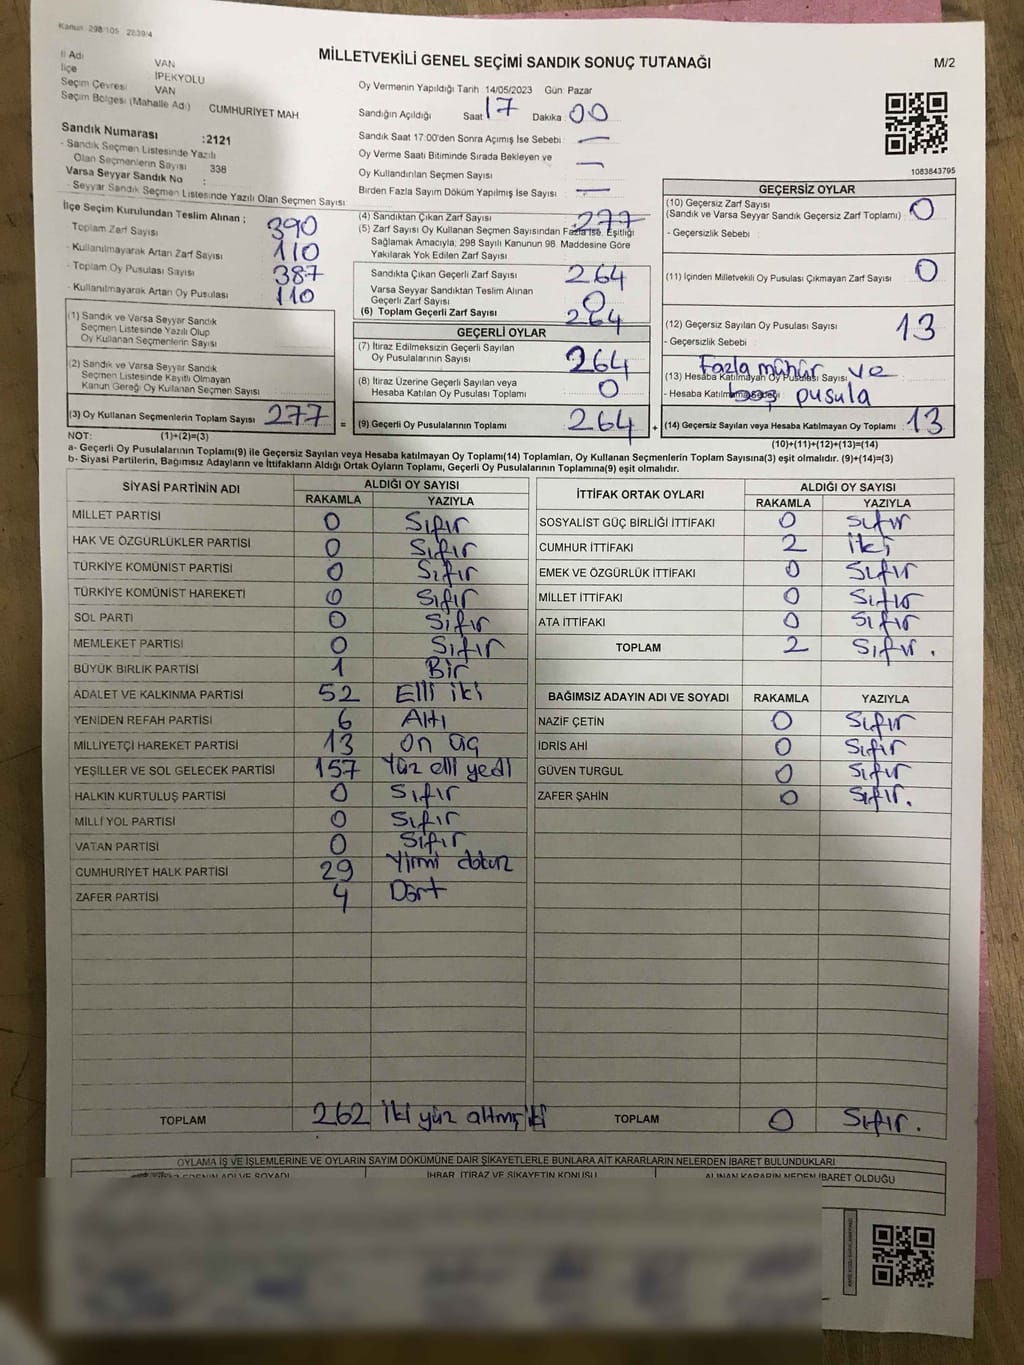 Kanun 298/105 2839/4
MİLLETVEKİLİ GENEL SEÇİMİ SANDIK SONUÇ TUTANAĞI
M/2
İl Adı VAN
İlçe İPEKYOLU
Seçim Çevresi VAN
Seçim Bölgesi (Mahalle Adı) CUMHURİYET MAH
Sandık Numarası :2121
- Sandık Seçmen Listesinde Yazılı
Olan Seçmenlerin Sayısı : 338
Varsa Seyyar Sandık No :
- Seyyar Sandık Seçmen Listesinde Yazılı Olan Seçmen Sayısı
Oy Vermenin Yapıldığı Tarih 14/05/2023 Gün: Pazar
Sandığın Açıldığı Saat 17 Dakika 00
Sandık Saat 17:00'den Sonra Açımış İse Sebebi : —
Oy Verme Saati Bitiminde Sırada Bekleyen ve
Oy Kullandırılan Seçmen Sayısı : —
Birden Fazla Sayım Döküm Yapılmış İse Sayısı : —
1083843795
İlçe Seçim Kurulundan Teslim Alınan ;
Toplam Zarf Sayısı 390
- Kullanılmayarak Artan Zarf Sayısı 110
- Toplam Oy Pusulası Sayısı 387
- Kullanılmayarak Artan Oy Pusulası 110
(1) Sandık ve Varsa Seyyar Sandık
Seçmen Listesinde Yazılı Olup
Oy Kullanan Seçmenlerin Sayısı
(2) Sandık ve Varsa Seyyar Sandık
Seçmen Listesinde Kayıtlı Olmayan
Kanun Gereği Oy Kullanan Seçmen Sayısı
(3) Oy Kullanan Seçmenlerin Toplam Sayısı 277
(4) Sandıktan Çıkan Zarf Sayısı 277
(5) Zarf Sayısı Oy Kullanan Seçmen Sayısından Fazla İse, Eşitliği
Sağlamak Amacıyla, 298 Sayılı Kanunun 98. Maddesine Göre
Yakılarak Yok Edilen Zarf Sayısı
Sandıkta Çıkan Geçerli Zarf Sayısı 264
Varsa Seyyar Sandıktan Teslim Alınan
Geçerli Zarf Sayısı 0
(6) Toplam Geçerli Zarf Sayısı 264
GEÇERLİ OYLAR
(7) İtiraz Edilmeksizin Geçerli Sayılan
Oy Pusulalarının Sayısı 264
(8) İtiraz Üzerine Geçerli Sayılan veya
Hesaba Katılan Oy Pusulası Toplamı 0
= (9) Geçerli Oy Pusulalarının Toplamı 264 +
GEÇERSİZ OYLAR
(10) Geçersiz Zarf Sayısı
(Sandık ve Varsa Seyyar Sandık Geçersiz Zarf Toplamı) 0
- Geçersizlik Sebebi :
(11) İçinden Milletvekili Oy Pusulası Çıkmayan Zarf Sayısı 0
(12) Geçersiz Sayılan Oy Pusulası Sayısı 13
- Geçersizlik Sebebi :
Fazla mühür ve
(13) Hesaba Katılmayan Oy Pusulası Sayısı
- Hesaba Katılmama Sebebi :
boş pusula
(14) Geçersiz Sayılan veya Hesaba Katılmayan Oy Toplamı 13
NOT: (1)+(2)=(3)
(10)+(11)+(12)+(13)=(14)
a- Geçerli Oy Pusulalarının Toplamı(9) ile Geçersiz Sayılan veya Hesaba katılmayan Oy Toplamı(14) Toplamları, Oy Kullanan Seçmenlerin Toplam Sayısına(3) eşit olmalıdır. (9)+(14)=(3)
b- Siyasi Partilerin, Bağımsız Adayların ve İttifakların Aldığı Ortak Oyların Toplamı, Geçerli Oy Pusulalarının Toplamına(9) eşit olmalıdır.
SİYASİ PARTİNİN ADI ALDIĞI OY SAYISI
RAKAMLA YAZIYLA
MİLLET PARTİSİ 0 Sıfır
HAK VE ÖZGÜRLÜKLER PARTİSİ 0 Sıfır
TÜRKİYE KOMÜNİST PARTİSİ 0 Sıfır
TÜRKİYE KOMÜNİST HAREKETİ 0 Sıfır
SOL PARTİ 0 Sıfır
MEMLEKET PARTİSİ 0 Sıfır
BÜYÜK BİRLİK PARTİSİ 1 Bir
ADALET VE KALKINMA PARTİSİ 52 Elli iki
YENİDEN REFAH PARTİSİ 6 Altı
MİLLİYETÇİ HAREKET PARTİSİ 13 On üç
YEŞİLLER VE SOL GELECEK PARTİSİ 157 Yüz elli yedi
HALKIN KURTULUŞ PARTİSİ 0 Sıfır
MİLLİ YOL PARTİSİ 0 Sıfır
VATAN PARTİSİ 0 Sıfır
CUMHURİYET HALK PARTİSİ 29 Yirmi dokuz
ZAFER PARTİSİ 4 Dört
TOPLAM 262 İki yüz altmış iki
İTTİFAK ORTAK OYLARI ALDIĞI OY SAYISI
RAKAMLA YAZIYLA
SOSYALİST GÜÇ BİRLİĞİ İTTİFAKI 0 Sıfır
CUMHUR İTTİFAKI 2 iki
EMEK VE ÖZGÜRLÜK İTTİFAKI 0 Sıfır
MİLLET İTTİFAKI 0 Sıfır
ATA İTTİFAKI 0 Sıfır
TOPLAM 2 Sıfır.
BAĞIMSIZ ADAYIN ADI VE SOYADI RAKAMLA YAZIYLA
NAZİF ÇETİN 0 Sıfır
İDRİS AHİ 0 Sıfır
GÜVEN TURGUL 0 Sıfır
ZAFER ŞAHİN 0 Sıfır.
TOPLAM 0 Sıfır.
OYLAMA İŞ VE İŞLEMLERİNE VE OYLARIN SAYIM DÖKÜMÜNE DAİR ŞİKAYETLERLE BUNLARA AİT KARARLARIN NELERDEN İBARET BULUNDUKLARI
ADI VE SOYADI İHBAR, İTİRAZ VE ŞİKAYETİN KONUSU ALINAN KARARIN NEDEN İBARET OLDUĞU